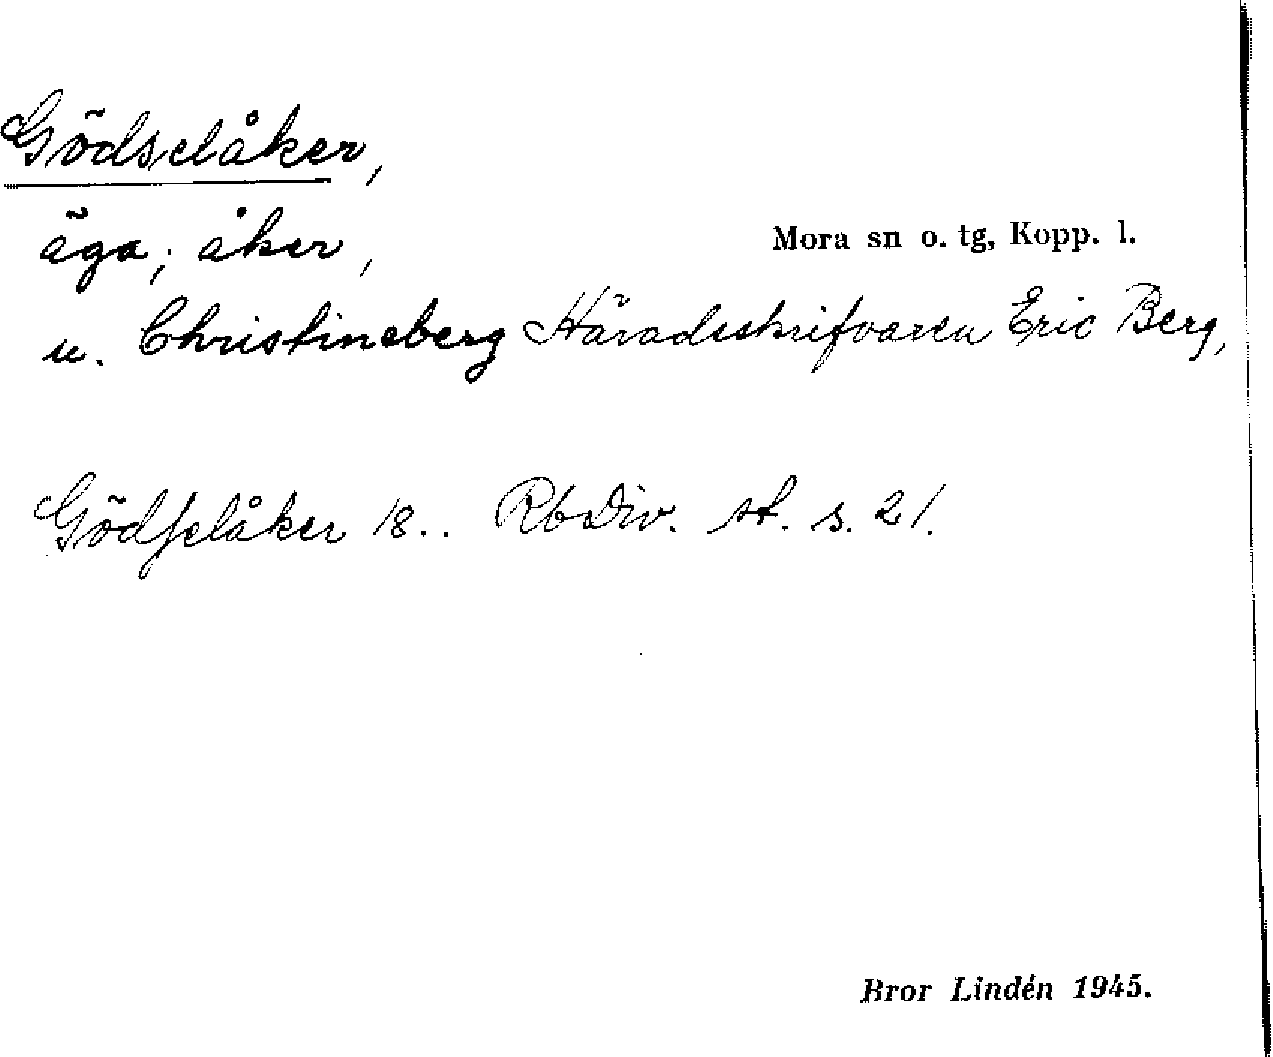 Gödselåker,
äga; åker,
Mora sn o. tg, Kopp. l.
u. Christineberg Häradsskrifvaren Eric Berg,
Gödſelåker 18.. RbDiv. st. s. 21.
Bror Lindén 1945.